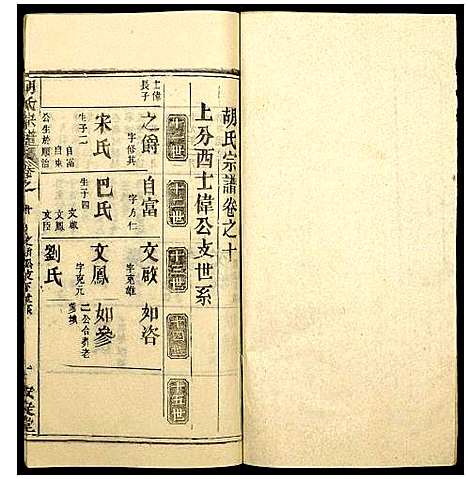 胡氏宗譜卷之十
上分酉士偉公支世系
十一世
十二世
十三世
十四世
十五世
士偉長子
之爵
字修其
自富
字方仁
文啟
字克雄
如咨
宋氏
生子二
自東
自富
公生於順治
巴氏
生子四
文啟
文鳳
文臣
文鳳
字克元
如參
二公合葬老
劉氏